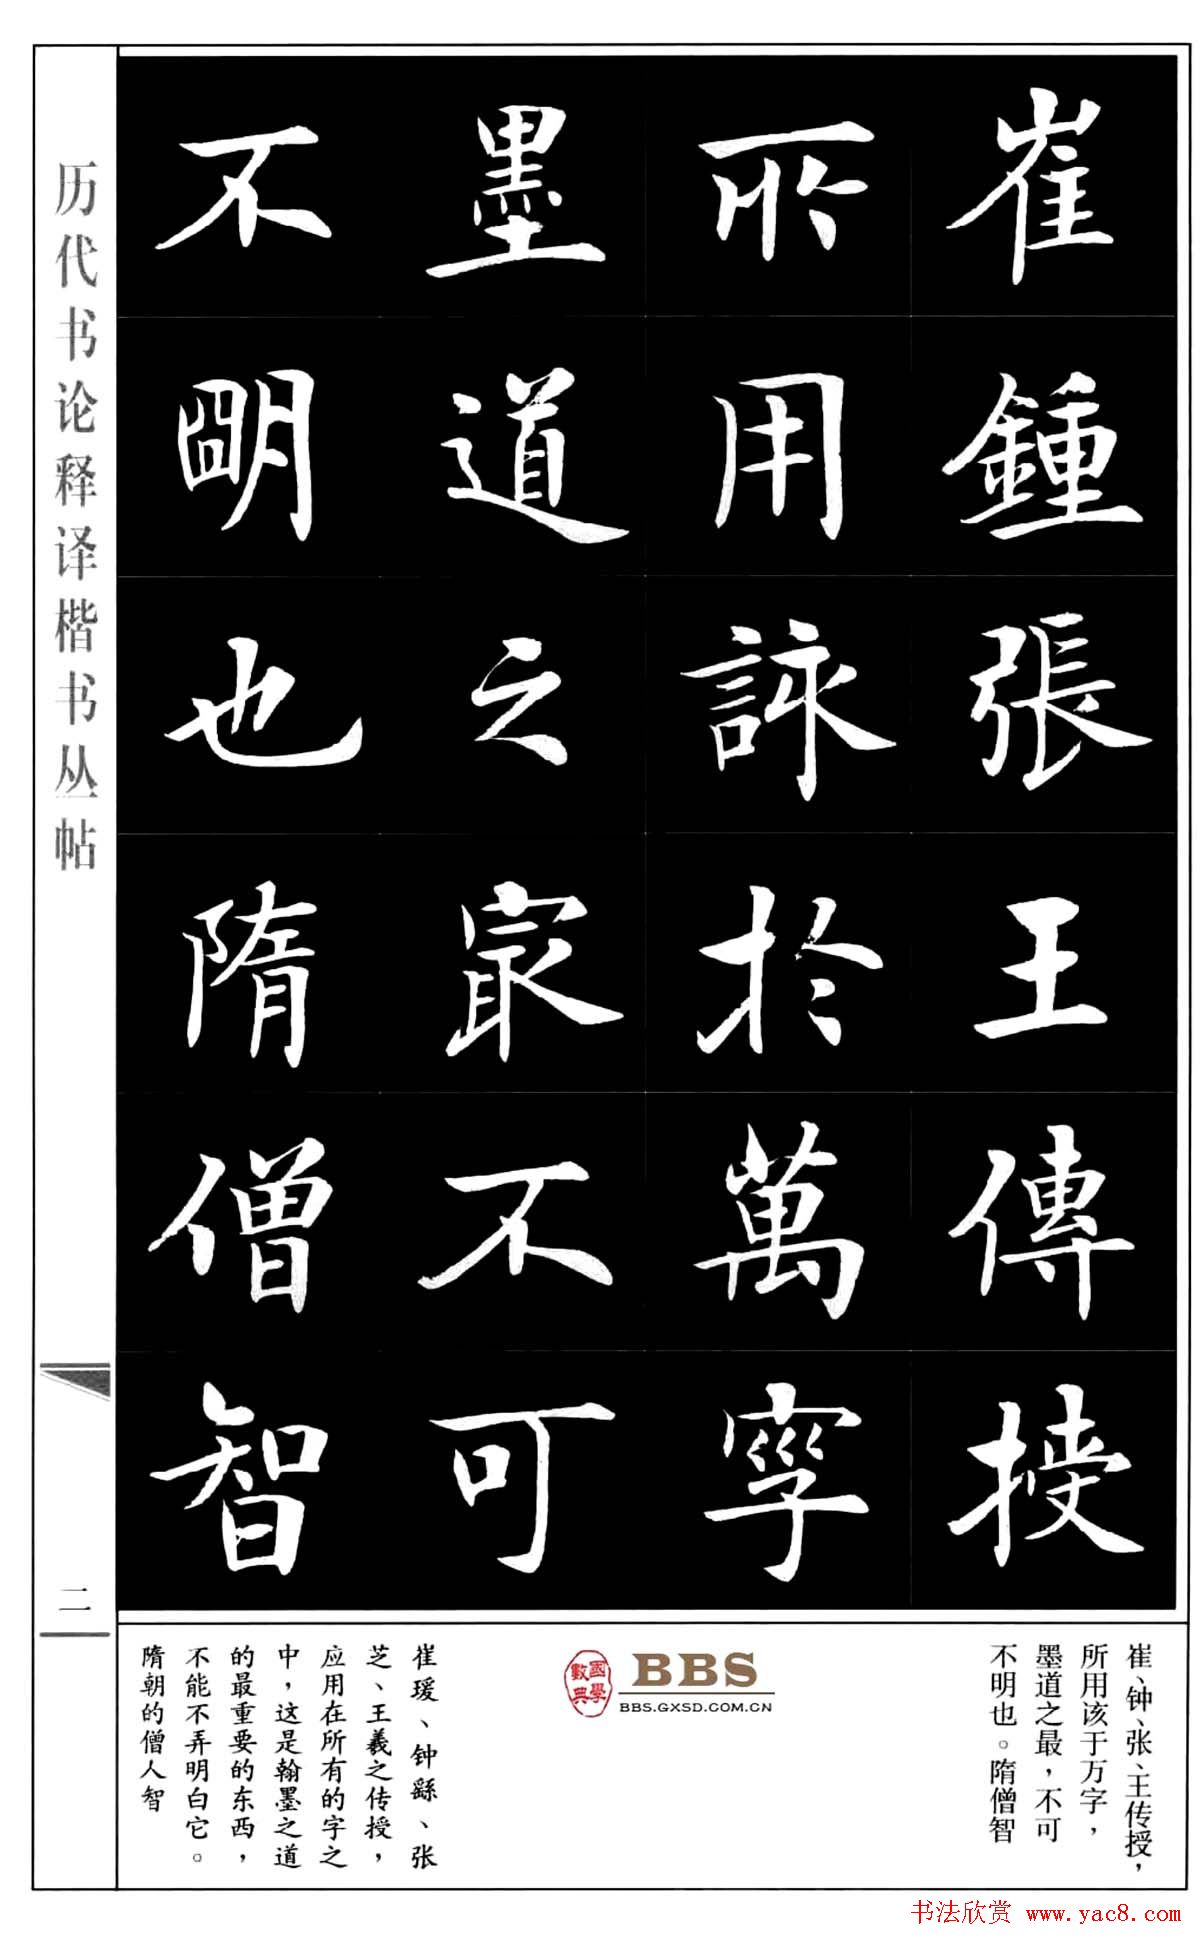 崔鍾張王傳授
所用詠於萬字
墨道之㝡不可
不朙也隋僧智
历代书论释译楷书丛帖
二
崔、钟、张、王传授，
所用该于万字，
墨道之最，不可
不明也。隋僧智
國學數典
BBS
BBS.GXSD.COM.CN
崔瑗、钟繇、张
芝、王羲之传授，
应用在所有的字之
中，这是翰墨之道
的最重要的东西，
不能不弄明白它。
隋朝的僧人智
书法欣赏 www.yac8.com